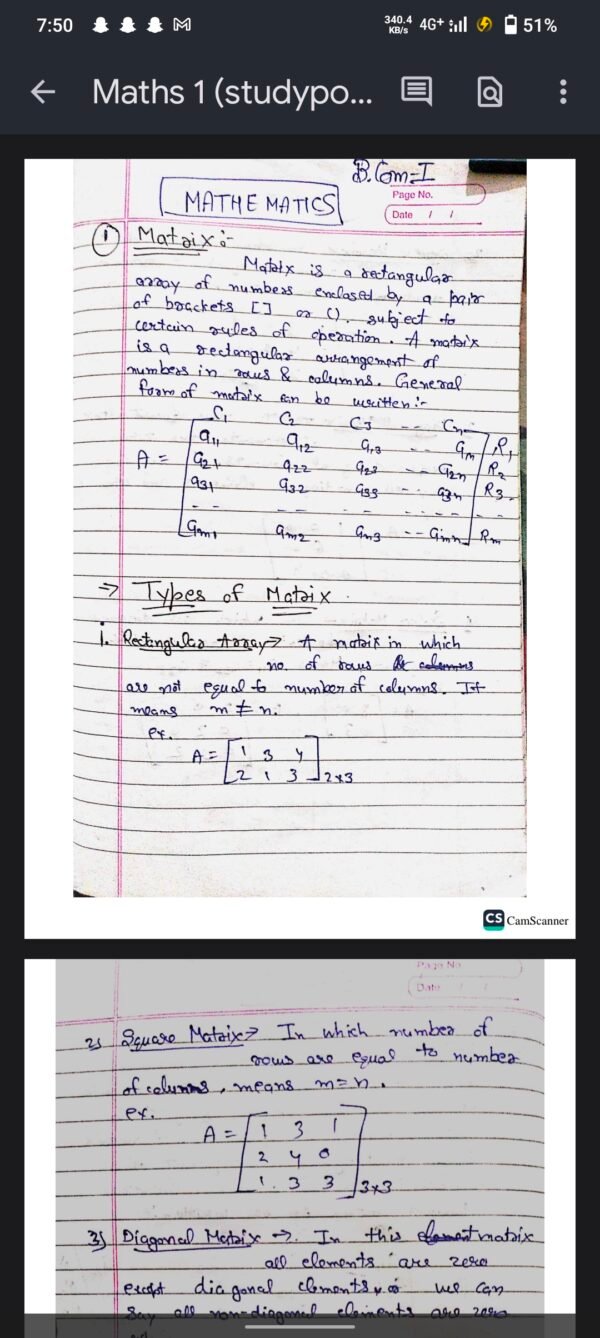 7:50
340.4 KB/s 4G+ 51%
Maths 1 (studypo...
B.Com-I
MATHEMATICS
Page No.
Date / /
① Matrix :-
Matrix is a rectangular
array of numbers enclosed by a pair
of brackets [ ] or ( ). subject to
certain rules of operation. A matrix
is a rectangular arrangement of
numbers in rows & columns. General
form of matrix can be written :-
C1 C2 C3 -- Cn
a11 a12 a13 -- a1n R1
A = a21 a22 a23 -- a2n R2
a31 a32 a33 -- a3n R3
-- -- -- -- -- --
am1 am2 am3 -- amn Rm
⇒ Types of Matrix
i. Rectangular Array → A matrix in which
no. of rows & columns
are not equal to number of columns. It
means m ≠ n.
ex.
A = [ 1 3 4
2 1 3 ] 2x3
CS CamScanner
Page No
Date / /
2) Square Matrix → In which number of
rows are equal to number
of columns, means m = n.
ex.
A = [ 1 3 1
2 4 0
1 3 3 ] 3x3
3) Diagonal Matrix → In this element matrix
all elements are zero
except diagonal elements we can
say all non-diagonal elements are zero